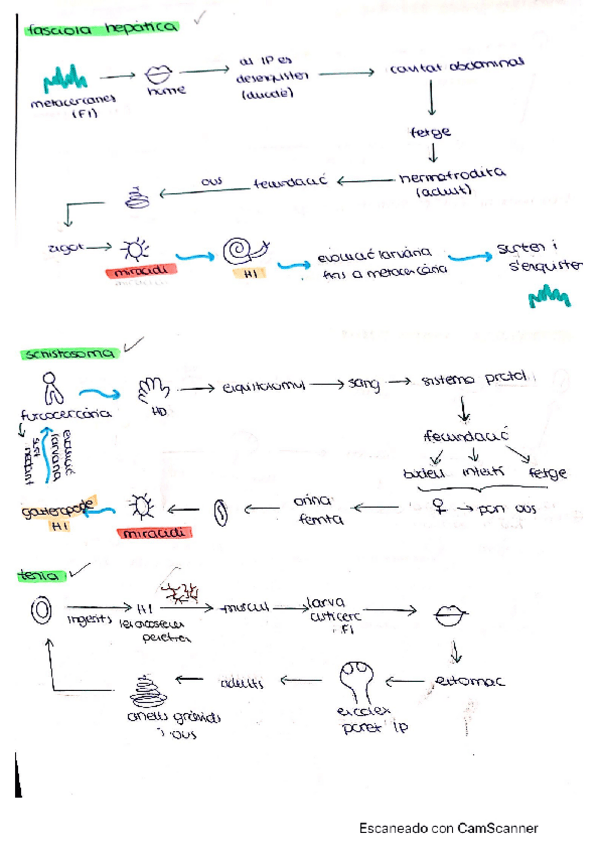 fasciola hepàtica
metacercàries
(FI)
home
al IP es
desenquisten
(duodè)
cavitat abdominal
fetge
hermafrodita
(adult)
fecundació
ous
zigot
miracidi
HI
evolució larvària
fins a metacercària
surten i
s'enquisten
schistosoma
furcocercària
HD
esquitosomul
sang
sistema portal
fecundació
budell
intestí
fetge
♀ → pon ous
orina
femta
miracidi
gasteròpode
HI
evolució
larvària
tenia
ingerits
HI
penetren
muscul
larva
cisticerc
FI
estomac
escólex
paret IP
adults
anells gràvids
i ous
Escaneado con CamScanner